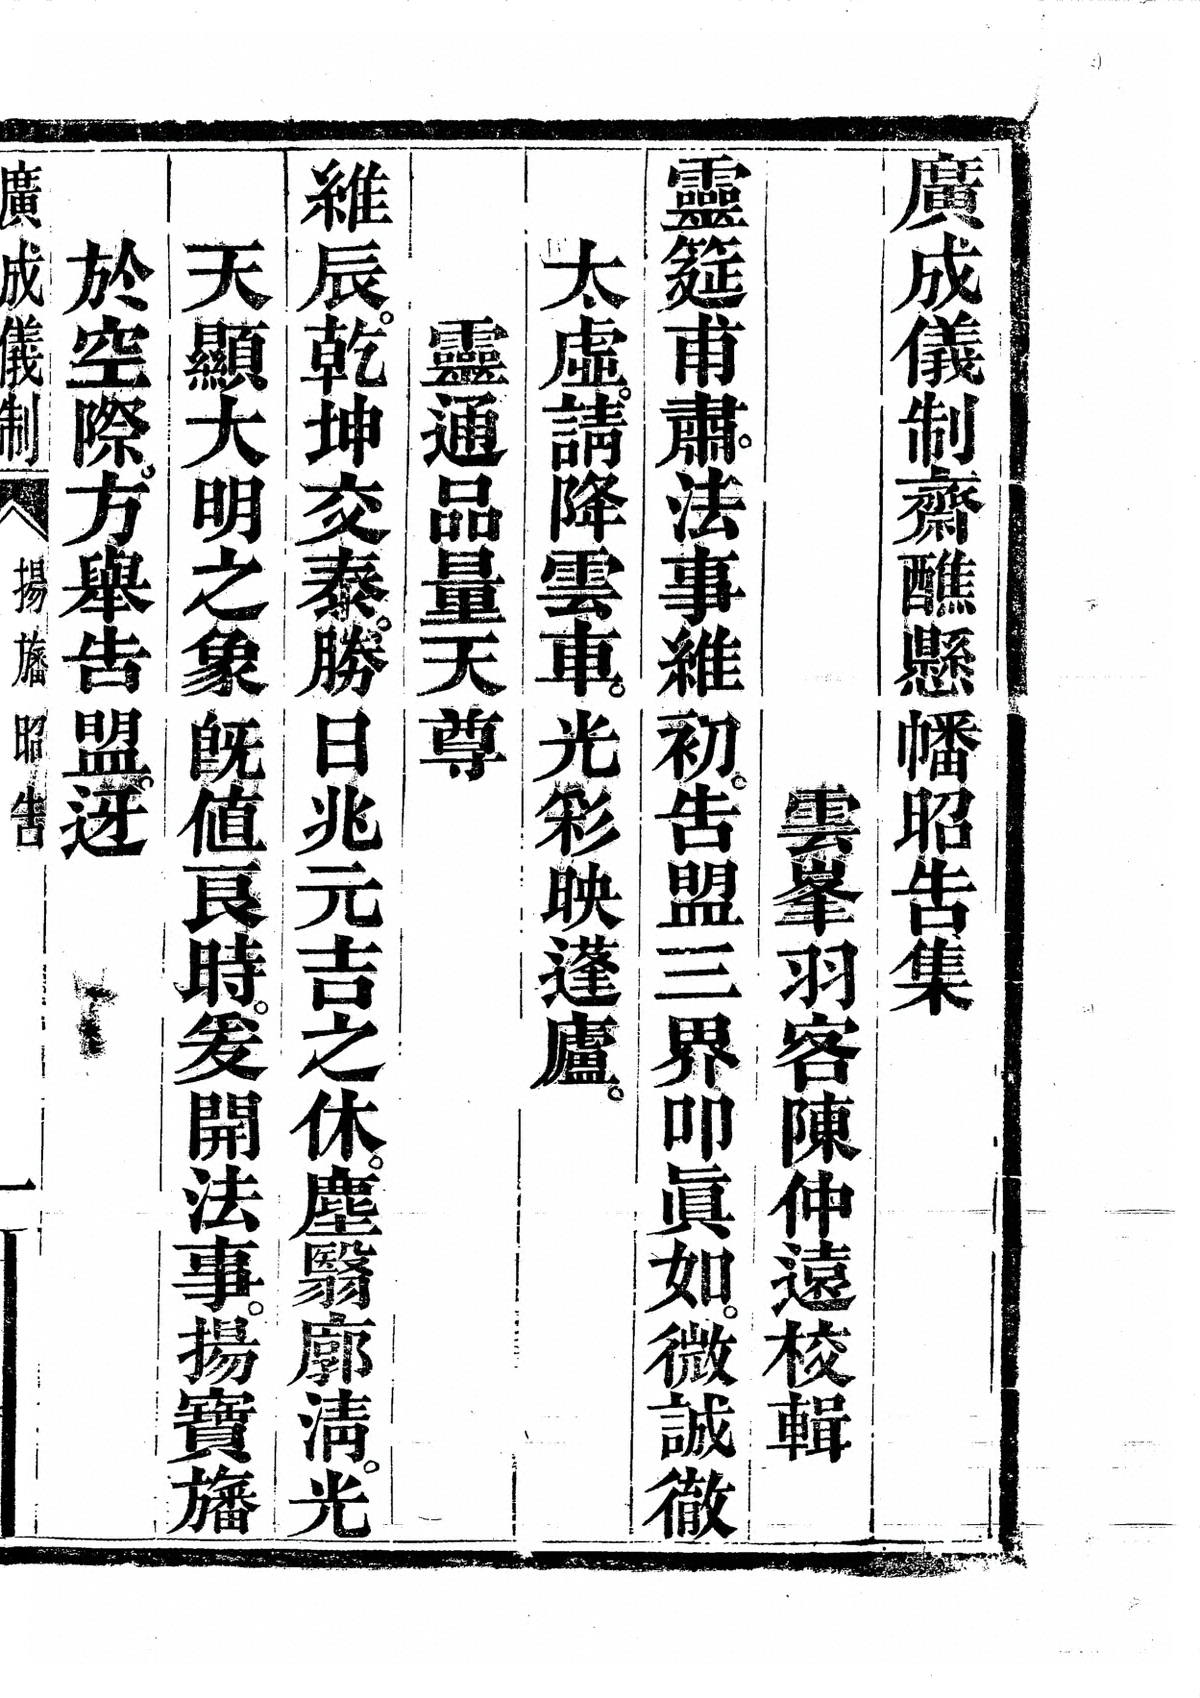 廣成儀制齋醮懸幡昭告集
雲峯羽客陳仲遠校輯
靈筵甫肅。法事維初。告盟三界叩眞如。微誠徹
太虛。請降雲車。光彩映蓬廬。
靈通品量天尊
維辰。乾坤交泰。勝日兆元吉之休。塵翳廓清。光
天顯大明之象旣値良時。爰開法事。揚寶旛
於空際。方舉告盟。迓
廣成儀制 揚旛昭告 一